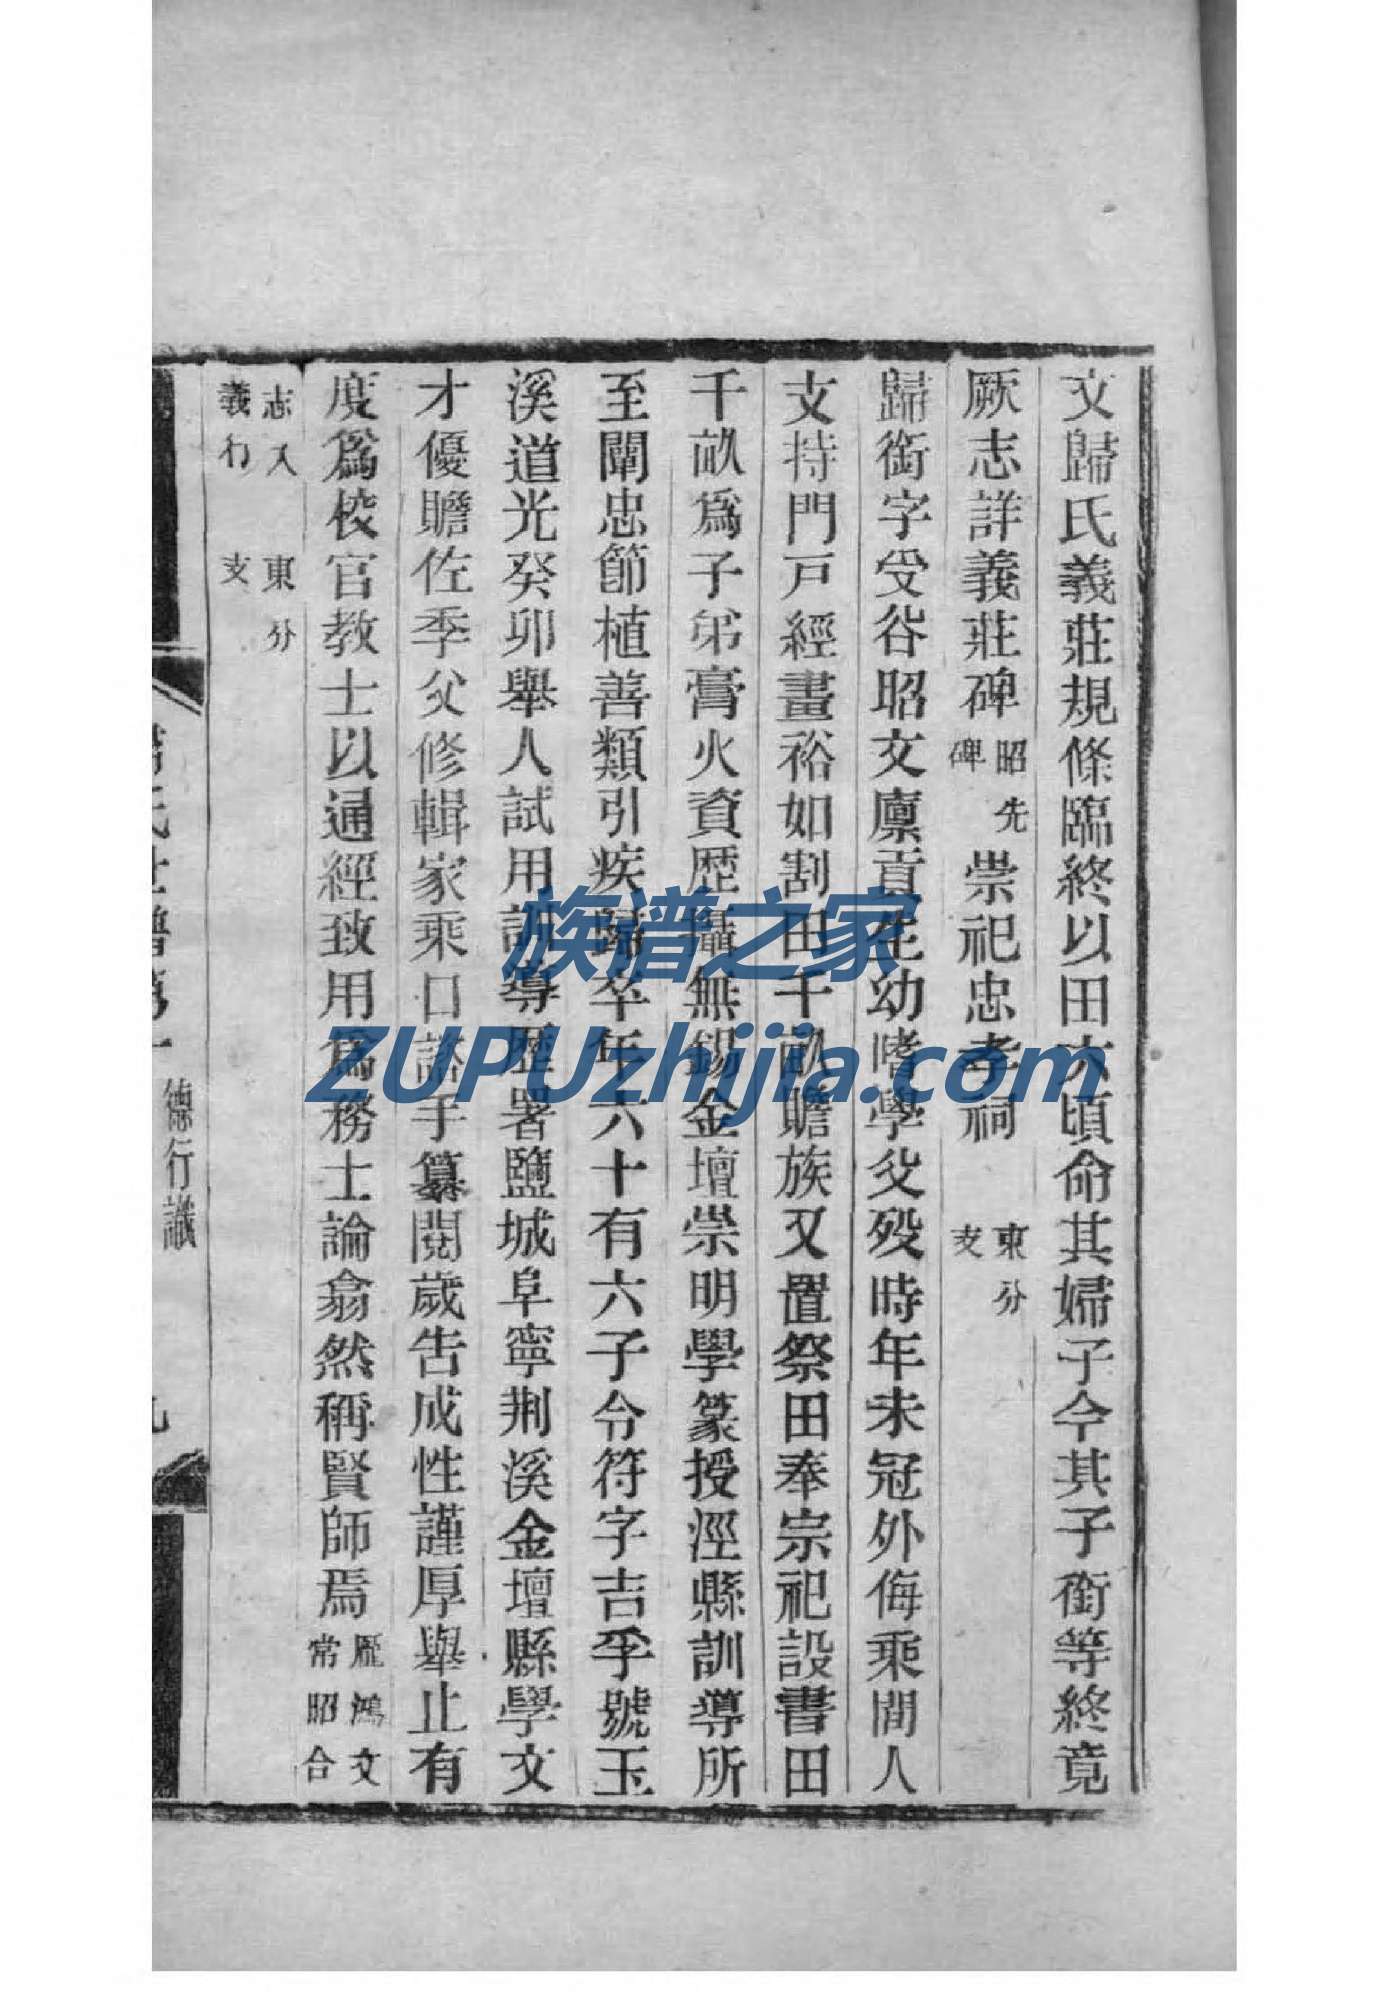 文歸氏義莊規條臨終以田六頃命其婦子今其子銜等終竟
厥志詳義莊碑昭先碑崇祀忠孝祠東分支
歸銜字受谷昭文廩貢生幼嗜學父歿時年未冠外侮乘間人
支持門戸經畫裕如割田千畝贍族又置祭田奉宗祀設書田
千畝爲子弟膏火資歷攝無錫金壇崇明學篆授涇縣訓導所
至闡忠節植善類引疾歸卒年六十有六子令符字吉孚號玉
溪道光癸卯舉人試用訓導歷署鹽城阜寧荆溪金壇縣學文
才優贍佐季父修輯家乘口談手纂閱歲告成性謹厚舉止有
度爲校官教士以通經致用爲務士論翕然稱賢師焉龐鴻文常昭合
志入義行東分支
歸氏世譜第十 德行議 九
族谱之家
ZUPUzhijia.com